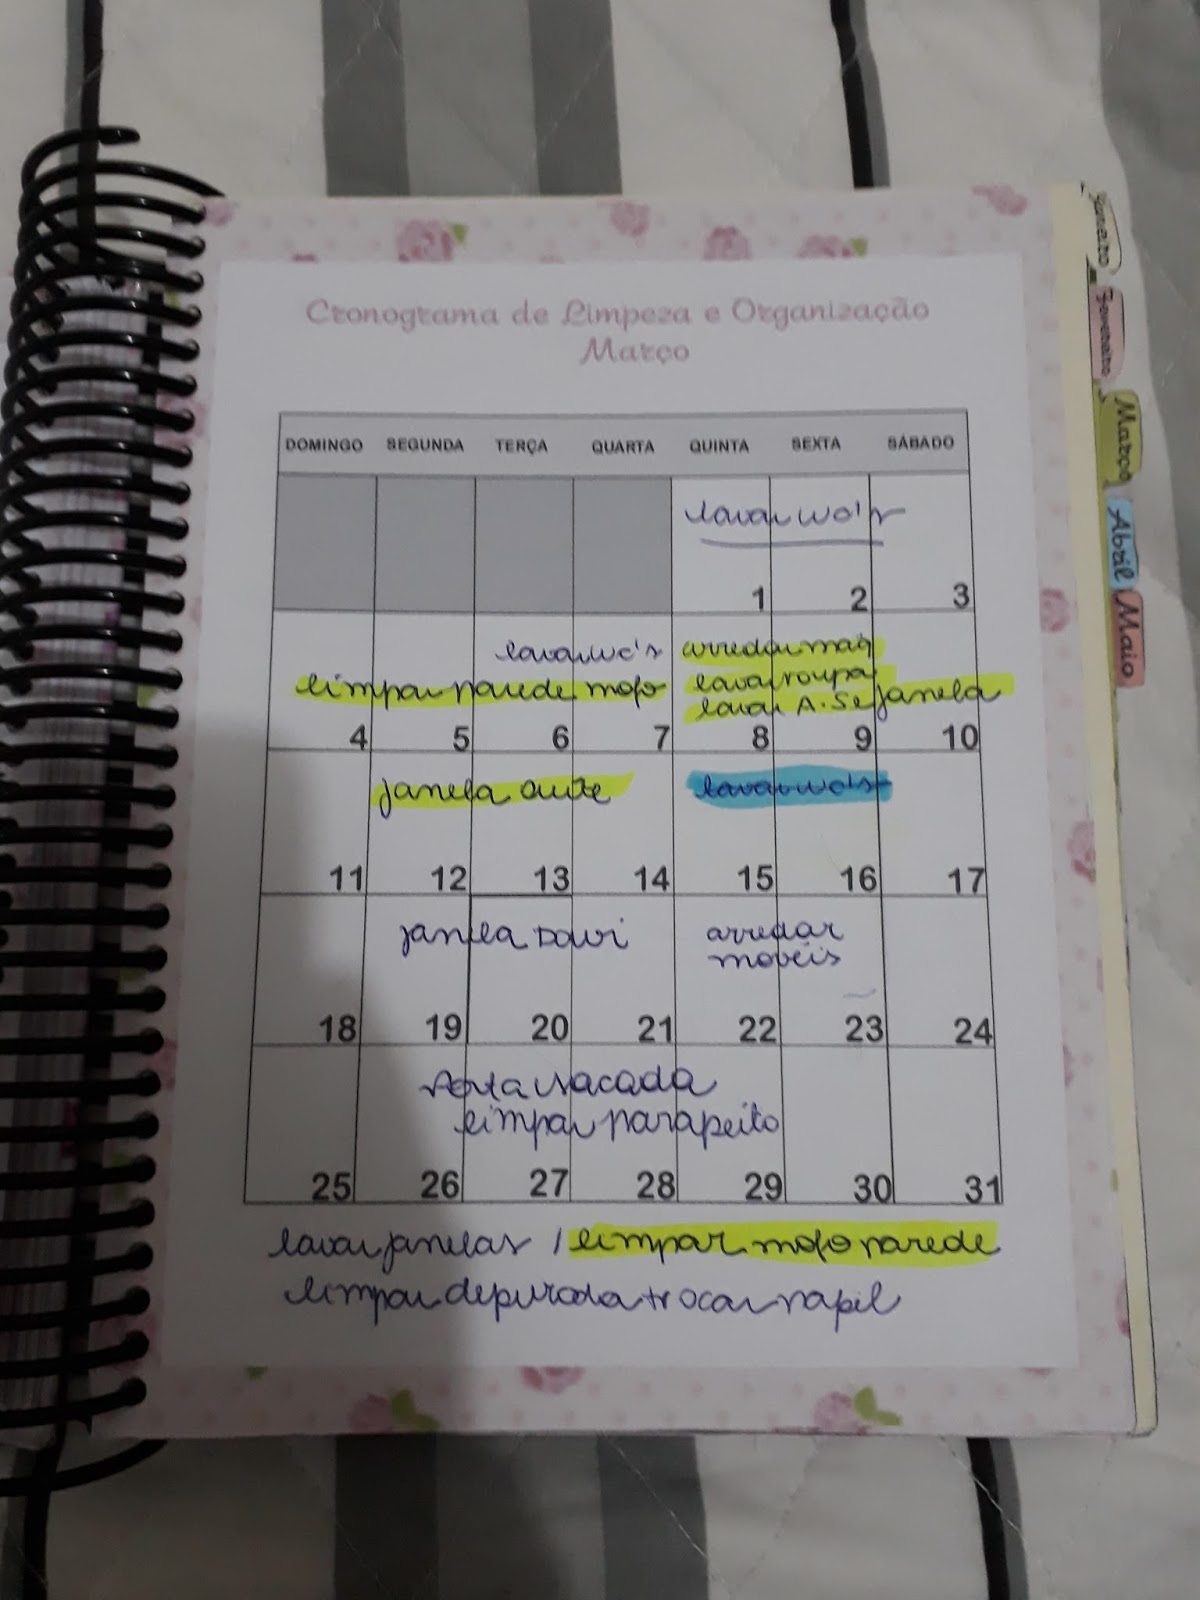 Cronograma de Limpeza e Organização
Março
DOMINGO SEGUNDA TERÇA QUARTA QUINTA SEXTA SÁBADO
lavar wc's
1 2 3
lavar wc's arredar maq
limpar parede mofo lavar roupa
lavar A. Se janela
4 5 6 7 8 9 10
janela suite lavar wc's
11 12 13 14 15 16 17
janela Davi arredar
moveis
18 19 20 21 22 23 24
Porta sacada
limpar parapeito
25 26 27 28 29 30 31
lavar janelas / limpar mofo parede
limpar depurador trocar papel
Janeiro
Fevereiro
Março
Abril
Maio